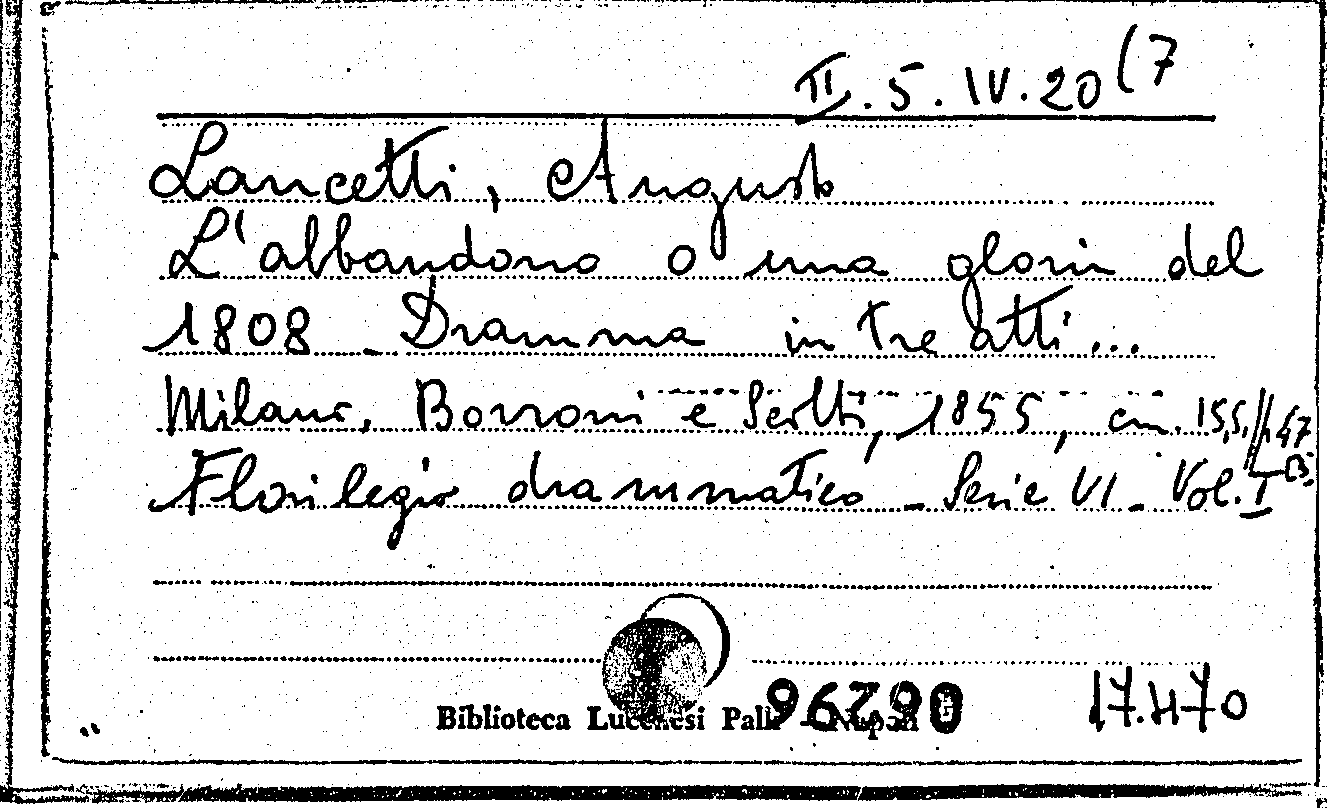 II. 5. IV. 20 (7
Lancetti, Augusto
L'abbandono o una gloria del
1808 - Dramma in tre atti...
Milano, Borroni e Scotti, 1855, cm. 15,5,
Florilegio drammatico - Serie VI - Vol. I
Biblioteca Lucchesi Palli - Napoli
17.470